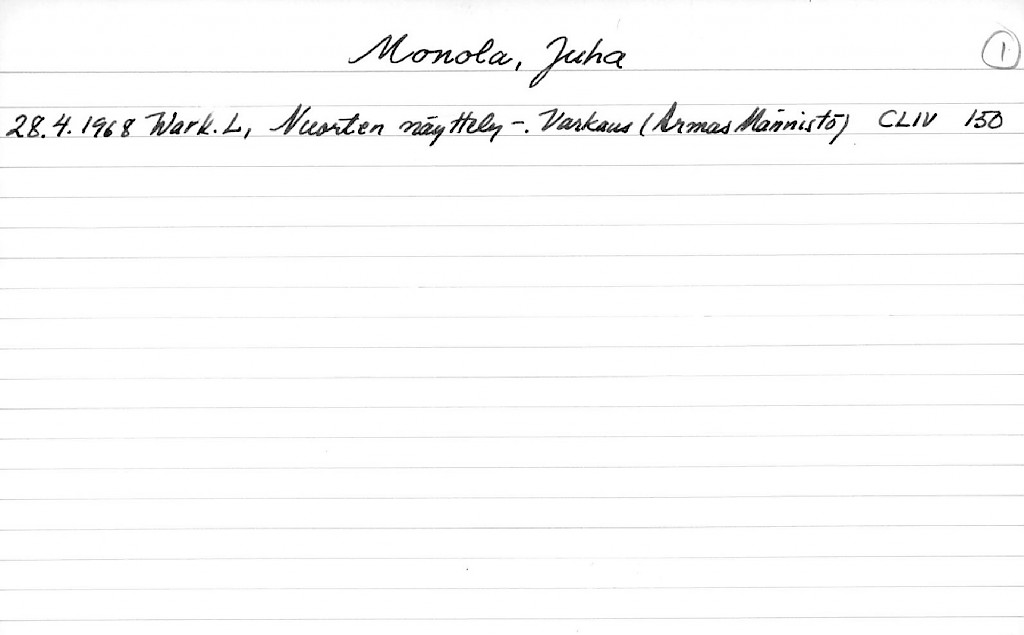 Monola, Juha
1
28.4.1968 Wark. L, Nuorten näyttely -. Varkaus (Armas Männistö) CLIV 150